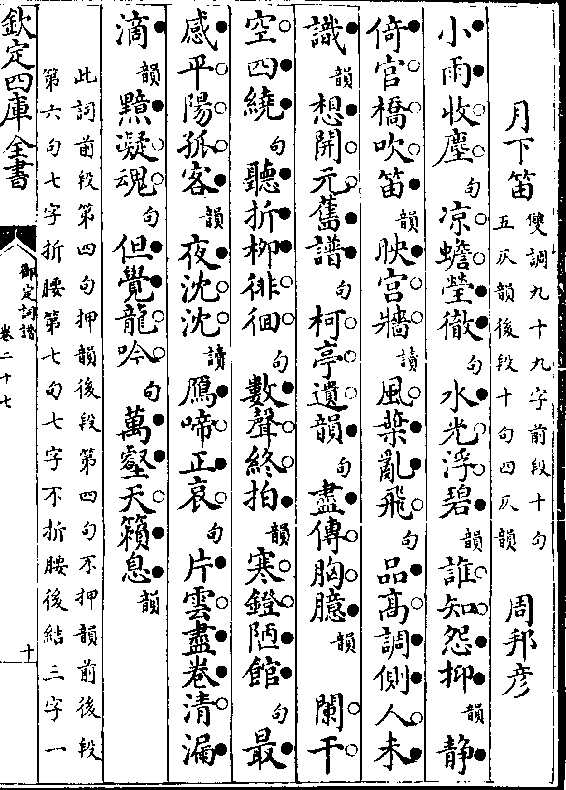 月下笛 雙調九十九字前段十句
五仄韻後段十句四仄韻 周邦彦
小雨收塵句涼蟾瑩徹句水光浮碧韻誰知怨抑韻静
倚官橋吹笛韻映宫牆讀風葉亂飛句品髙調側人未
識韻想開元舊譜句柯亭遺韻句盡傳胸臆韻 闌干
空四繞句聽折柳徘徊句數聲終拍韻寒鐙陋館句最
感平陽孤客韻夜沈沈讀鴈啼正哀句片雲盡卷清漏
滴韻黯凝魂句但覺龍吟句萬壑天籟息韻
此詞前段第四句押韻後段第四句不押韻前後段
第六句七字折腰第七句七字不折腰後結三字一
欽定四庫全書
御定詞譜
卷二十七
十